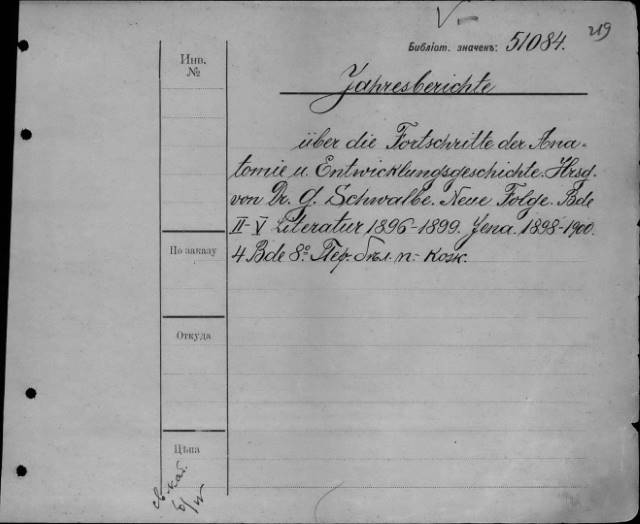 V-
219
Библіот. значекъ: 51084.
Инв.
№
Jahresberichte
über die Fortschritte der Ana-
tomie u. Entwicklungsgeschichte. Hrsg.
von Dr. G. Schwalbe. Neue Folge. Bde
II-V Literatur 1896-1899. Jena. 1898-1900.
4 Bde 8º. Пер. бѣл. п.- кож.
По заказу
Откуда
Цѣна
св. кат.